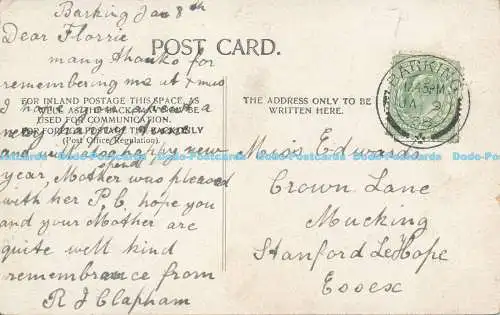 Barking Jan 8th
Dear Florrie
POST CARD.
many thanks for
remembering me at Xmas
FOR INLAND POSTAGE THIS SPACE, AS
WELL AS THE BACK, MAY NOW BE
USED FOR COMMUNICATION.
FOR FOREIGN POSTAGE THE BACK ONLY
(Post Office Regulation).
I have you
a very happy Xmas
and new
year, Mother was pleased
with her P.C. hope you
and your Mother are
quite well kind
remembrance from
R J Clapham
THE ADDRESS ONLY TO BE
WRITTEN HERE.
BARKING
12.45 PM
JA 9
08
Miss Edwards
Crown Lane
Mucking
Stanford LeHope
Essex